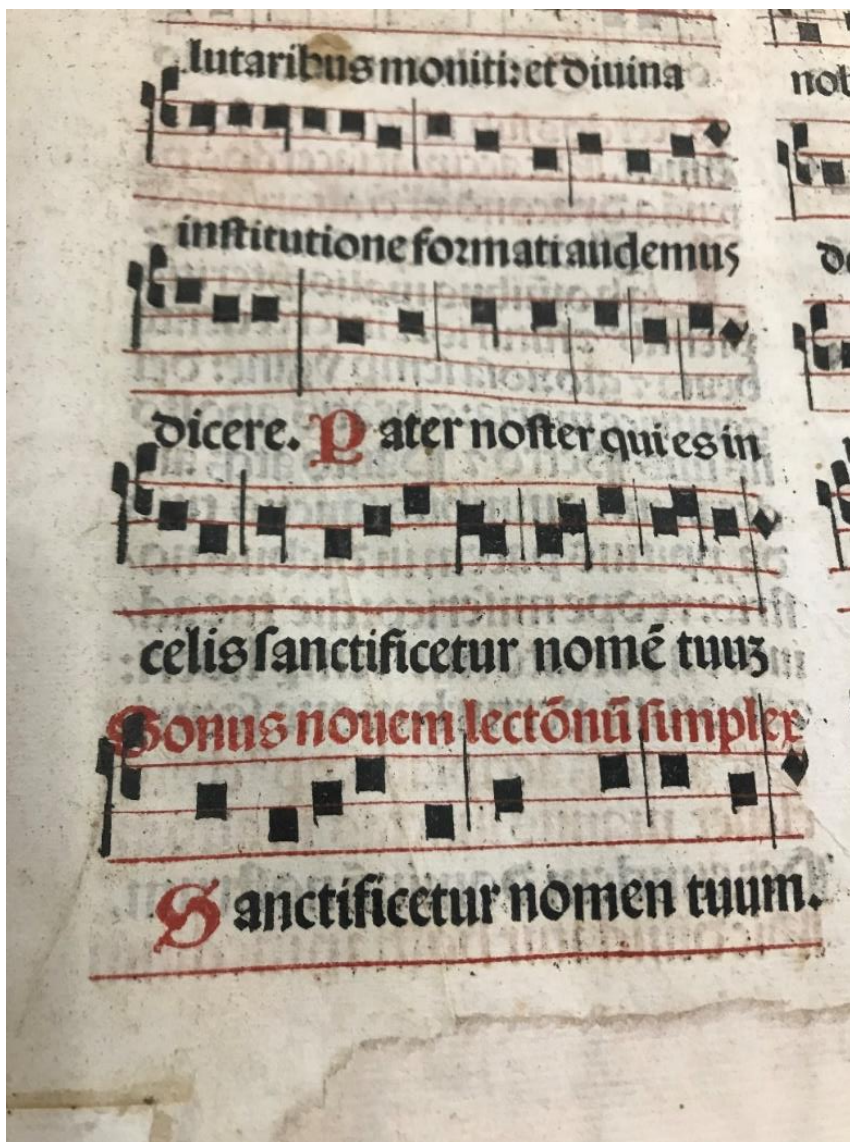 lutaribus moniti: et diuina
institutione formati audemus
dicere. Pater noster qui es in
celis sanctificetur nomē tuuꝫ
Tonus nouem lectōnū simplex
Sanctificetur nomen tuum.
nob